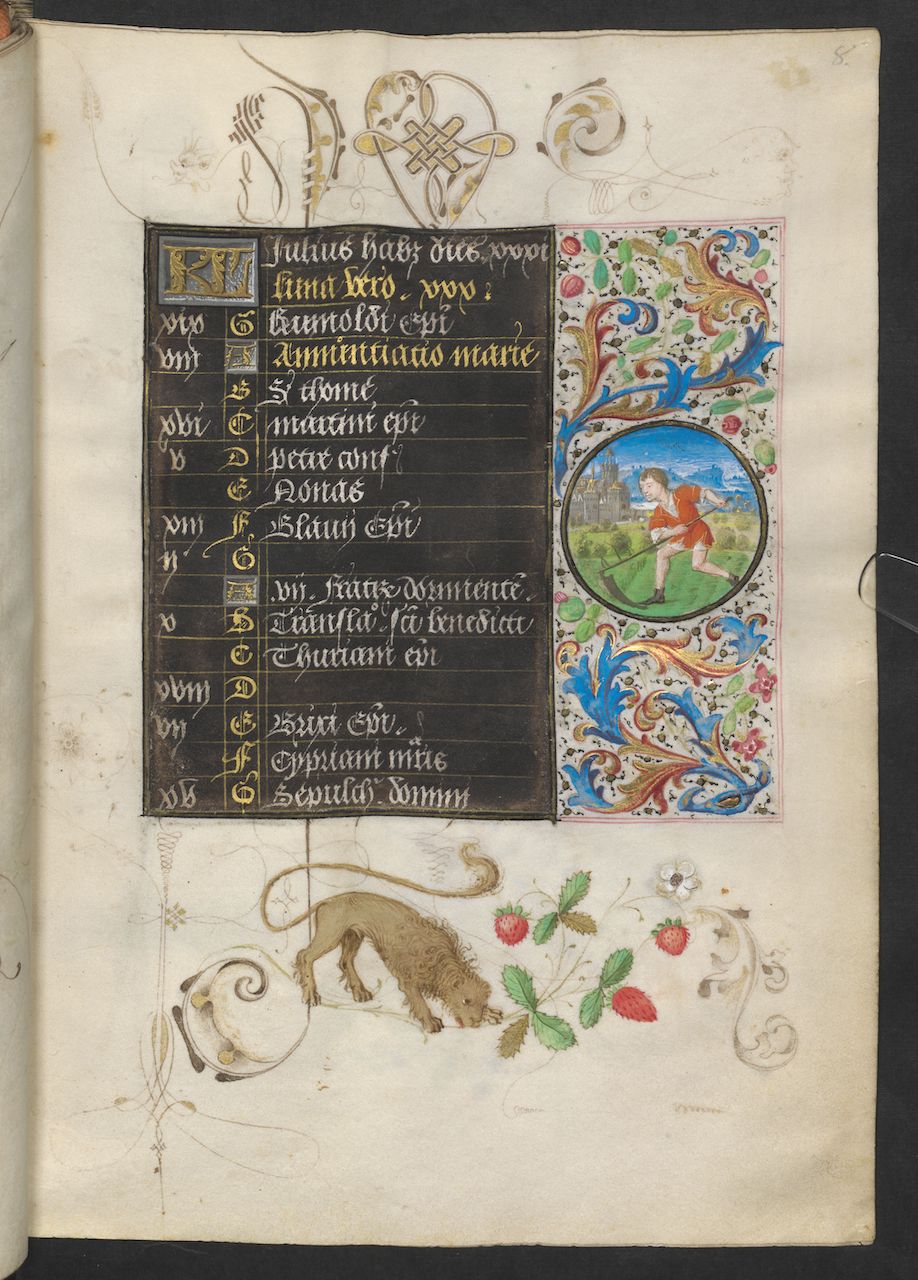 8.
KL Julius habꝫ dies. xxxi
luna vero. xxx.
xix G Rumoldi Epi
viij A Annuntiatio marie
B S thome
xvi C martini epi
v D petri conf
E Nonas
xiij F Glauij Epi
ij G
A .vij. fratꝝ dormientē.
x B Transla. sci benedicti
C Thuriani epi
xviij D
vij E Euxi Epi.
F Cypriani mris
xv G Sepulch. domini